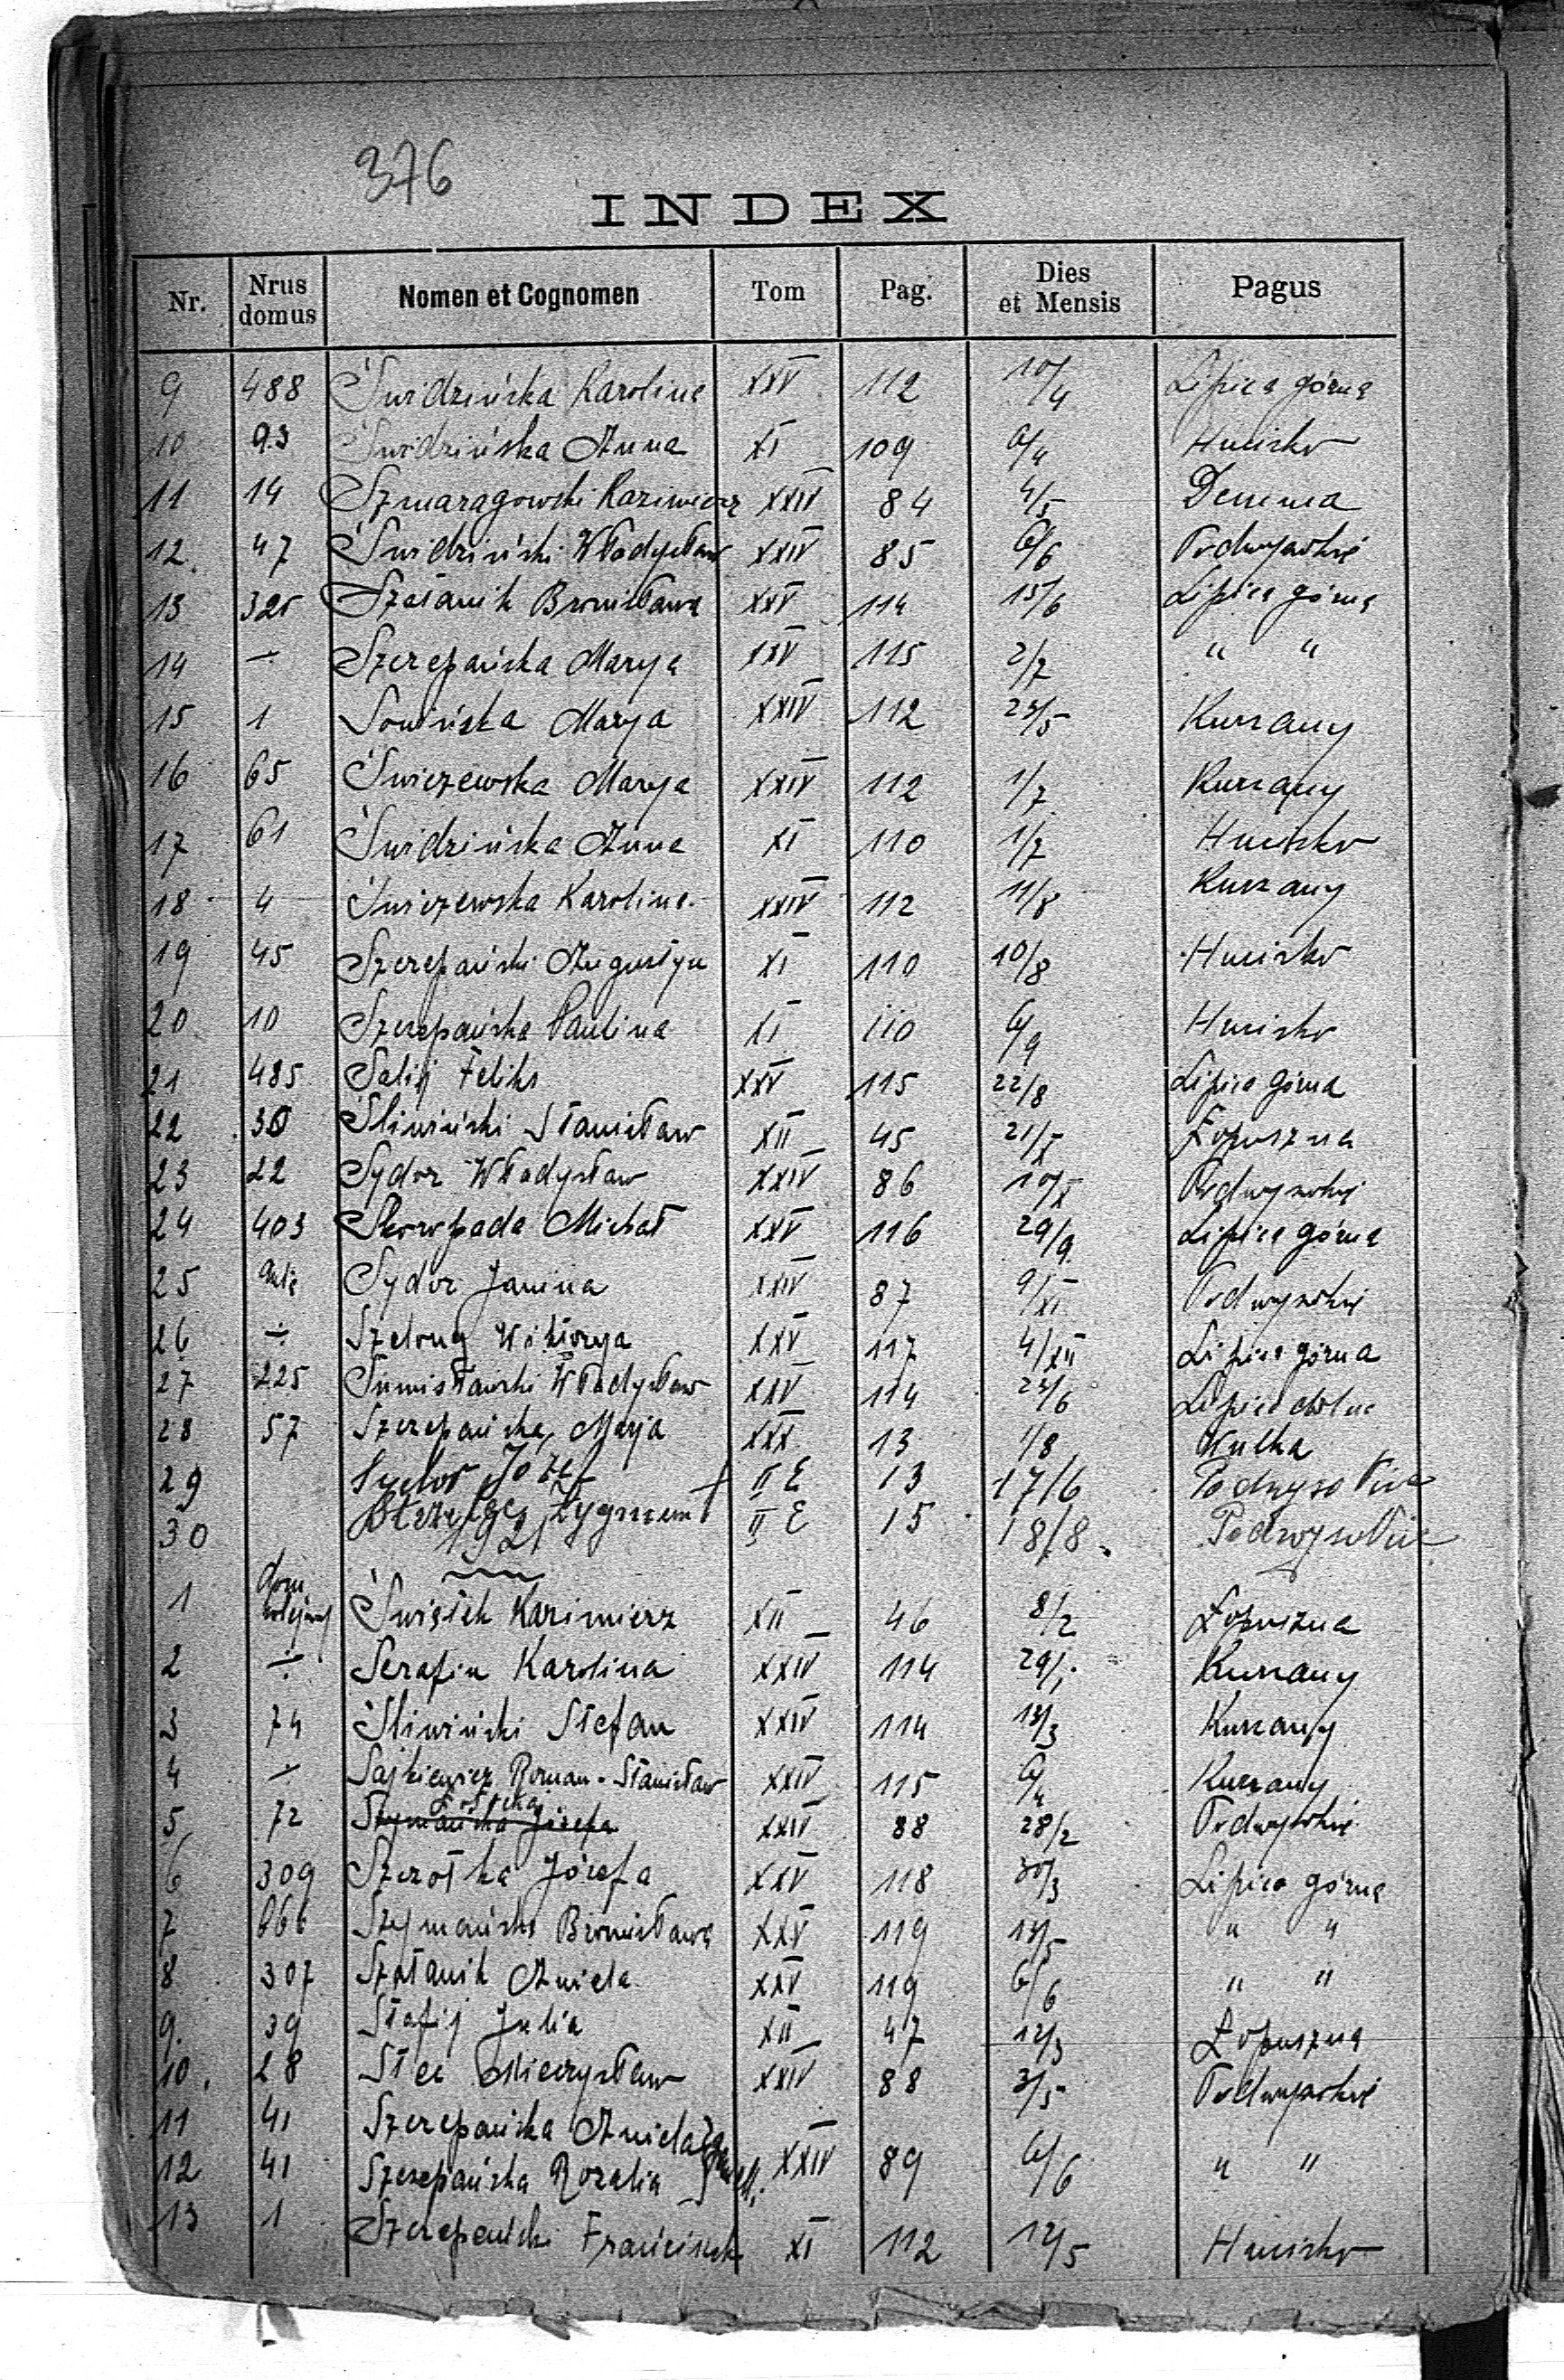 376
INDEX
Nr. Nrus domus Nomen et Cognomen Tom Pag. Dies et Mensis Pagus
9 488 Świdzińska Karolina XXV 112 10/4 Lipica górna
10 93 Świdzińska Anna XI 109 6/4 Hucisko
11 14 Szmaragowski Kazimierz XXIV 84 4/5 Demma
12. 47 Świdziński Władysław XXIV 85 6/6 Podwysokie
13 325 Szałanik Bronisława XXV 114 15/6 Lipica górna
14 ÷ Szczepańska Marya XXV 115 2/7 " "
15 1 Sowińska Marya XXIV 112 23/5 Kurzany
16 65 Świczewska Marya XXIV 112 1/7 Kurzany
17 61 Świdzińska Anna XI 110 1/7 Hucisko
18 4 Świczewska Karolina XXIV 112 11/8 Kurzany
19 45 Szczepański Augustyn XI 110 10/8 Hucisko
20 10 Szczepańska Paulina XI 110 6/9 Hucisko
21 485 Salij Feliks XXV 115 22/8 Lipica górna
22 30 Śliwiński Stanisław XII 45 21/X Łopuszna
23 22 Sydor Władysław XXIV 86 10/X Podwysokie
24 403 Skoropada Michał XXV 116 29/9. Lipica górna
25 Sydor Janina XXIV 87 9/XI Podwysokie
26 ÷ Szeloug Wiktorya XXV 117 4/XII Lipica górna
27 225 Władysław XXV 114 23/6 Lipica dolna
28 57 Szczepańska Marja XXX 13 1/8 Kulka
29 Sydor Józef II E 13 17/6 Podwysokie
30 Zygmunt II E 15 18/8. Podwysokie
1921
1 dom kolejowy Świstek Kazimierz XII 46 8/2 Łopuszna
2 ÷ Serafin Karolina XXIV 114 29/1. Kurzany
3 74 Śliwiński Stefan XXIV 114 13/3 Kurzany
4 ÷ Sajkiewicz Roman-Stanisław XXIV 115 6/4 Kurzany
5 72 Szymańska Józefa XXIV 88 28/2 Podwysokie
6 309 Szczotka Józefa XXV 118 30/3 Lipica górna
7 666 Szymańska Bronisława XXV 119 13/5 " "
8 307 Szałanik Aniela XXV 119 6/6 " "
9. 39 Stafij Julia XII 47 12/3 Łopuszna
10. 28 Stec Mieczysław XXIV 88 3/5 Podwysokie
11 41 Szczepańska Aniela
12 41 Szczepańska Rozalia XXIV 89 6/6 " "
13 1 Szczepański Franciszek XI 112 12/5 Hucisko